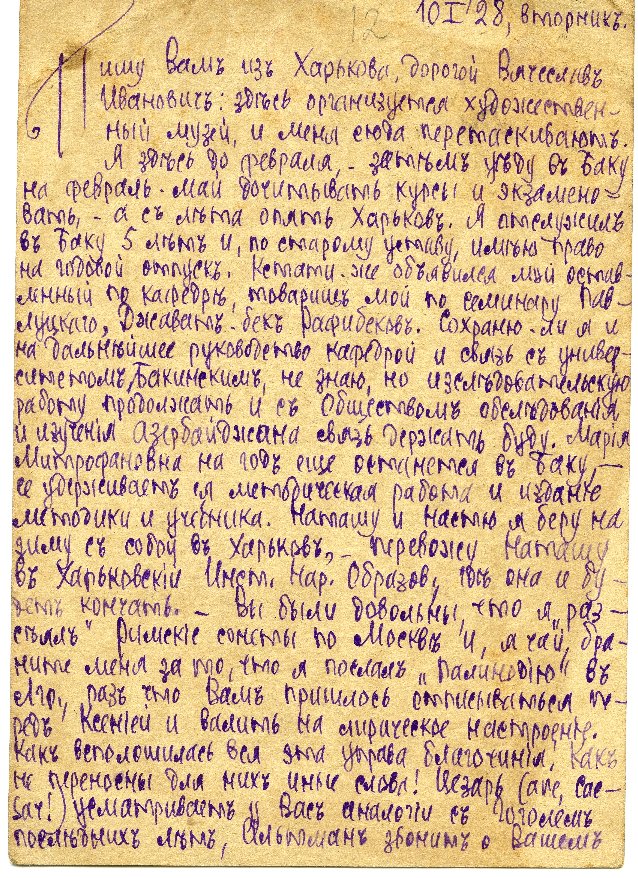 12
10 I 28, вторникъ.
Пишу Вамъ изъ Харькова, дорогой Вячеславъ
Ивановичъ: здѣсь организуется художествен-
ный музей, и меня сюда перетаскиваютъ.
Я здѣсь до февраля, - затѣмъ ѣду въ Баку
на февраль-май дочитывать курсы и экзамено-
вать, - а съ лѣта опять Харьковъ. Я отслужилъ
въ Баку 5 лѣтъ и, по старому уставу, имѣю право
на годовой отпускъ. Кстати-же объявился мой остав-
ленный по кафедрѣ, товарищъ мой по семинару Пав-
луцкаго, Джаватъ-бекъ Рафибековъ. Сохраню-ли я и
на дальнѣйшее руководство кафедрой и связь съ универ-
ситетомъ, Бакинскимъ, не знаю, но изслѣдовательскую
работу продолжать и съ Обществомъ обслѣдованія
и изученія Азербайджана связь держать буду. Марія
Митрофановна на годъ еще останется въ Баку, -
ее удерживаетъ ея методическая работа и изданіе
методики и учебника. Наташу и Настю я беру на
зиму съ собой въ Харьковъ, - перевожу Наташу
въ Харьковскій Инст. Нар. Образов., гдѣ она и бу-
детъ кончать. - Вы были довольны, что я „раз-
сѣялъ" Римскіе сонеты по Москвѣ и, я чай, бра-
ните меня за то, что я послалъ „Палинодію" въ
разъ что Вамъ пришлось отписываться пе-
редъ Ксеніей и валить на лирическое настроеніе.
Какъ всполошилась вся эта управа благочинія, какъ
не переносны для нихъ иныя слова! Цезарь (ave, Cae-
sar!) усматриваетъ у Васъ аналогіи съ Гоголемъ
послѣднихъ лѣтъ, Альтманъ звонитъ о Вашемъ